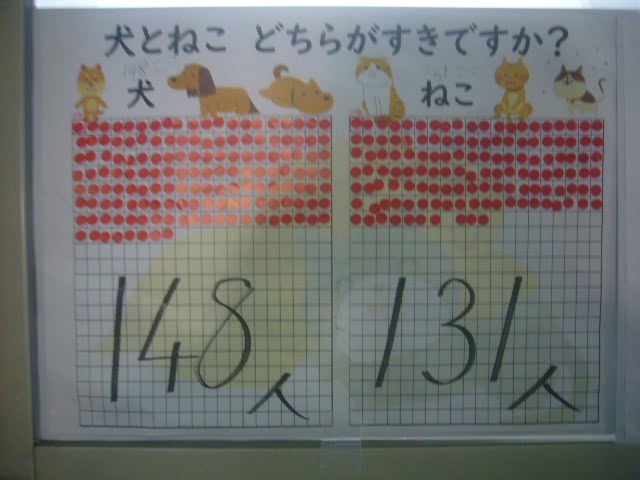 犬とねこ どちらがすきですか？
犬
ねこ
148人
131人